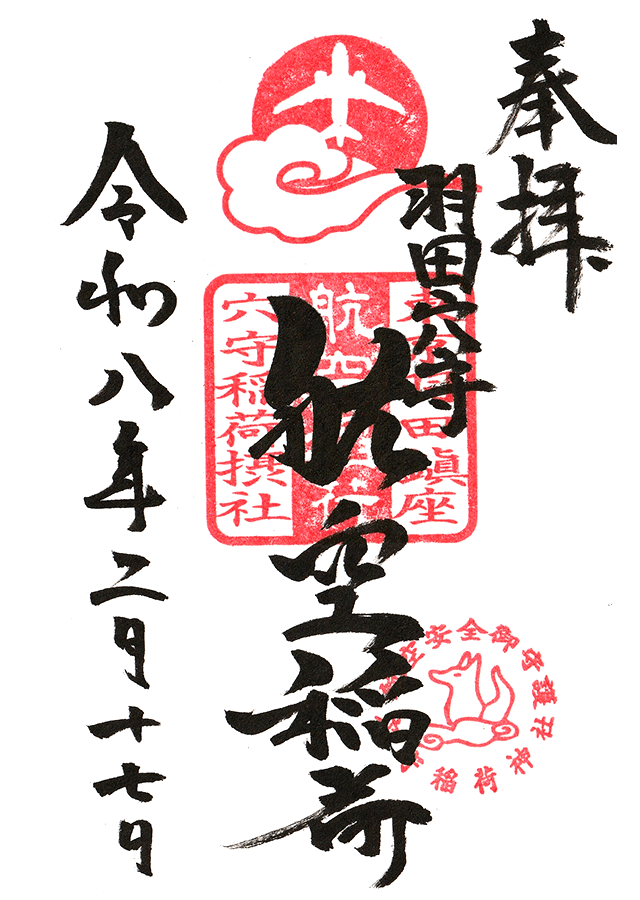 奉拝
羽田穴守
航空稲荷
令和八年二月十七日
東京羽田鎮座
航空稲荷
穴守稲荷摂社
空安全御守護
稲荷神社